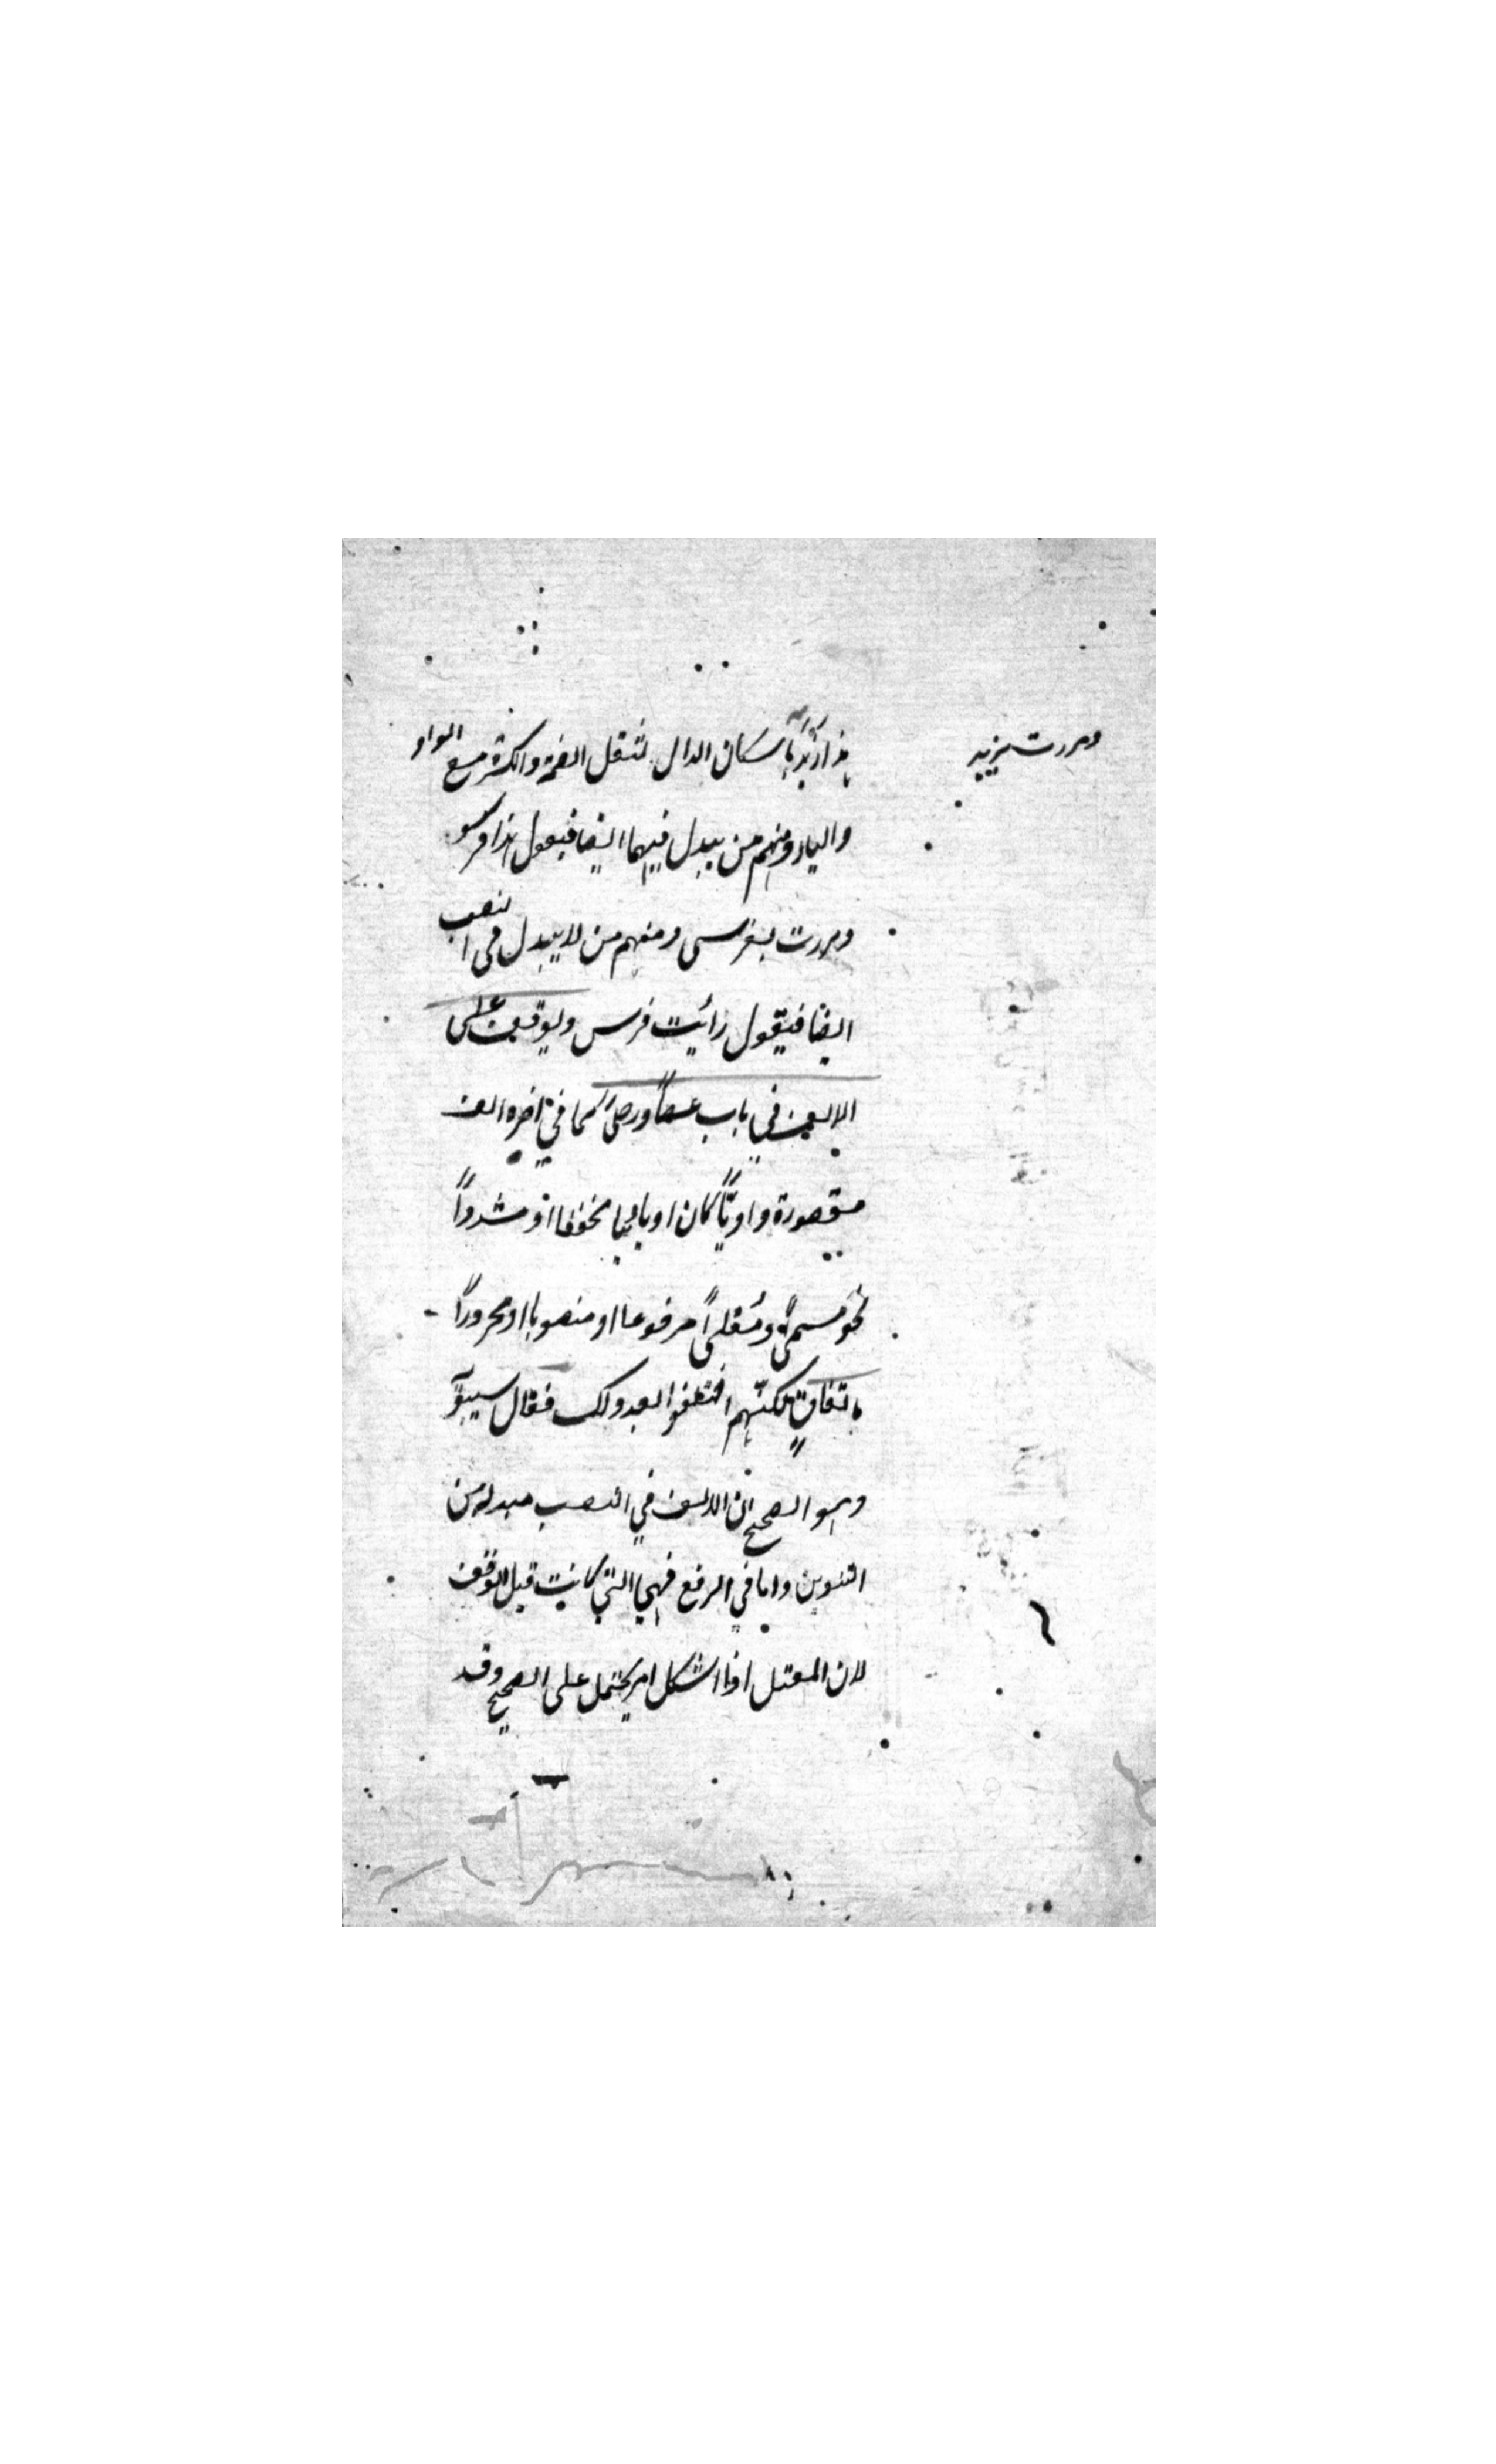 ومررت بزيد
هذا زيد باسكان الدال لثقل الضمة والكسرة مع الواو
والياء ومنهم من يبدل فيهما ايضا فيقول هذا فرسو
ومررت بفرسى ومنهم من لا يبدل فى النصب
ايضا فيقول رأيت فرس ويوقف على
الالف في باب عصاً ورحىً كما في آخره الف
مقصورة واويّاً كان او يائيا مخففا او مشدداً
نحو مسمىً ومُعلىً مرفوعا او منصوبا او مجروراً
باتفاقٍ لكنّهم اختلفوا بعد ذلك فقال سيبويه
وهو الصحيح ان الالف في النصب مبدلة من
التنوين واما في الرفع فهي التي كانت قبل الوقف
لان المعتل اذا اشكل امره يحتمل على الصحيح وقد